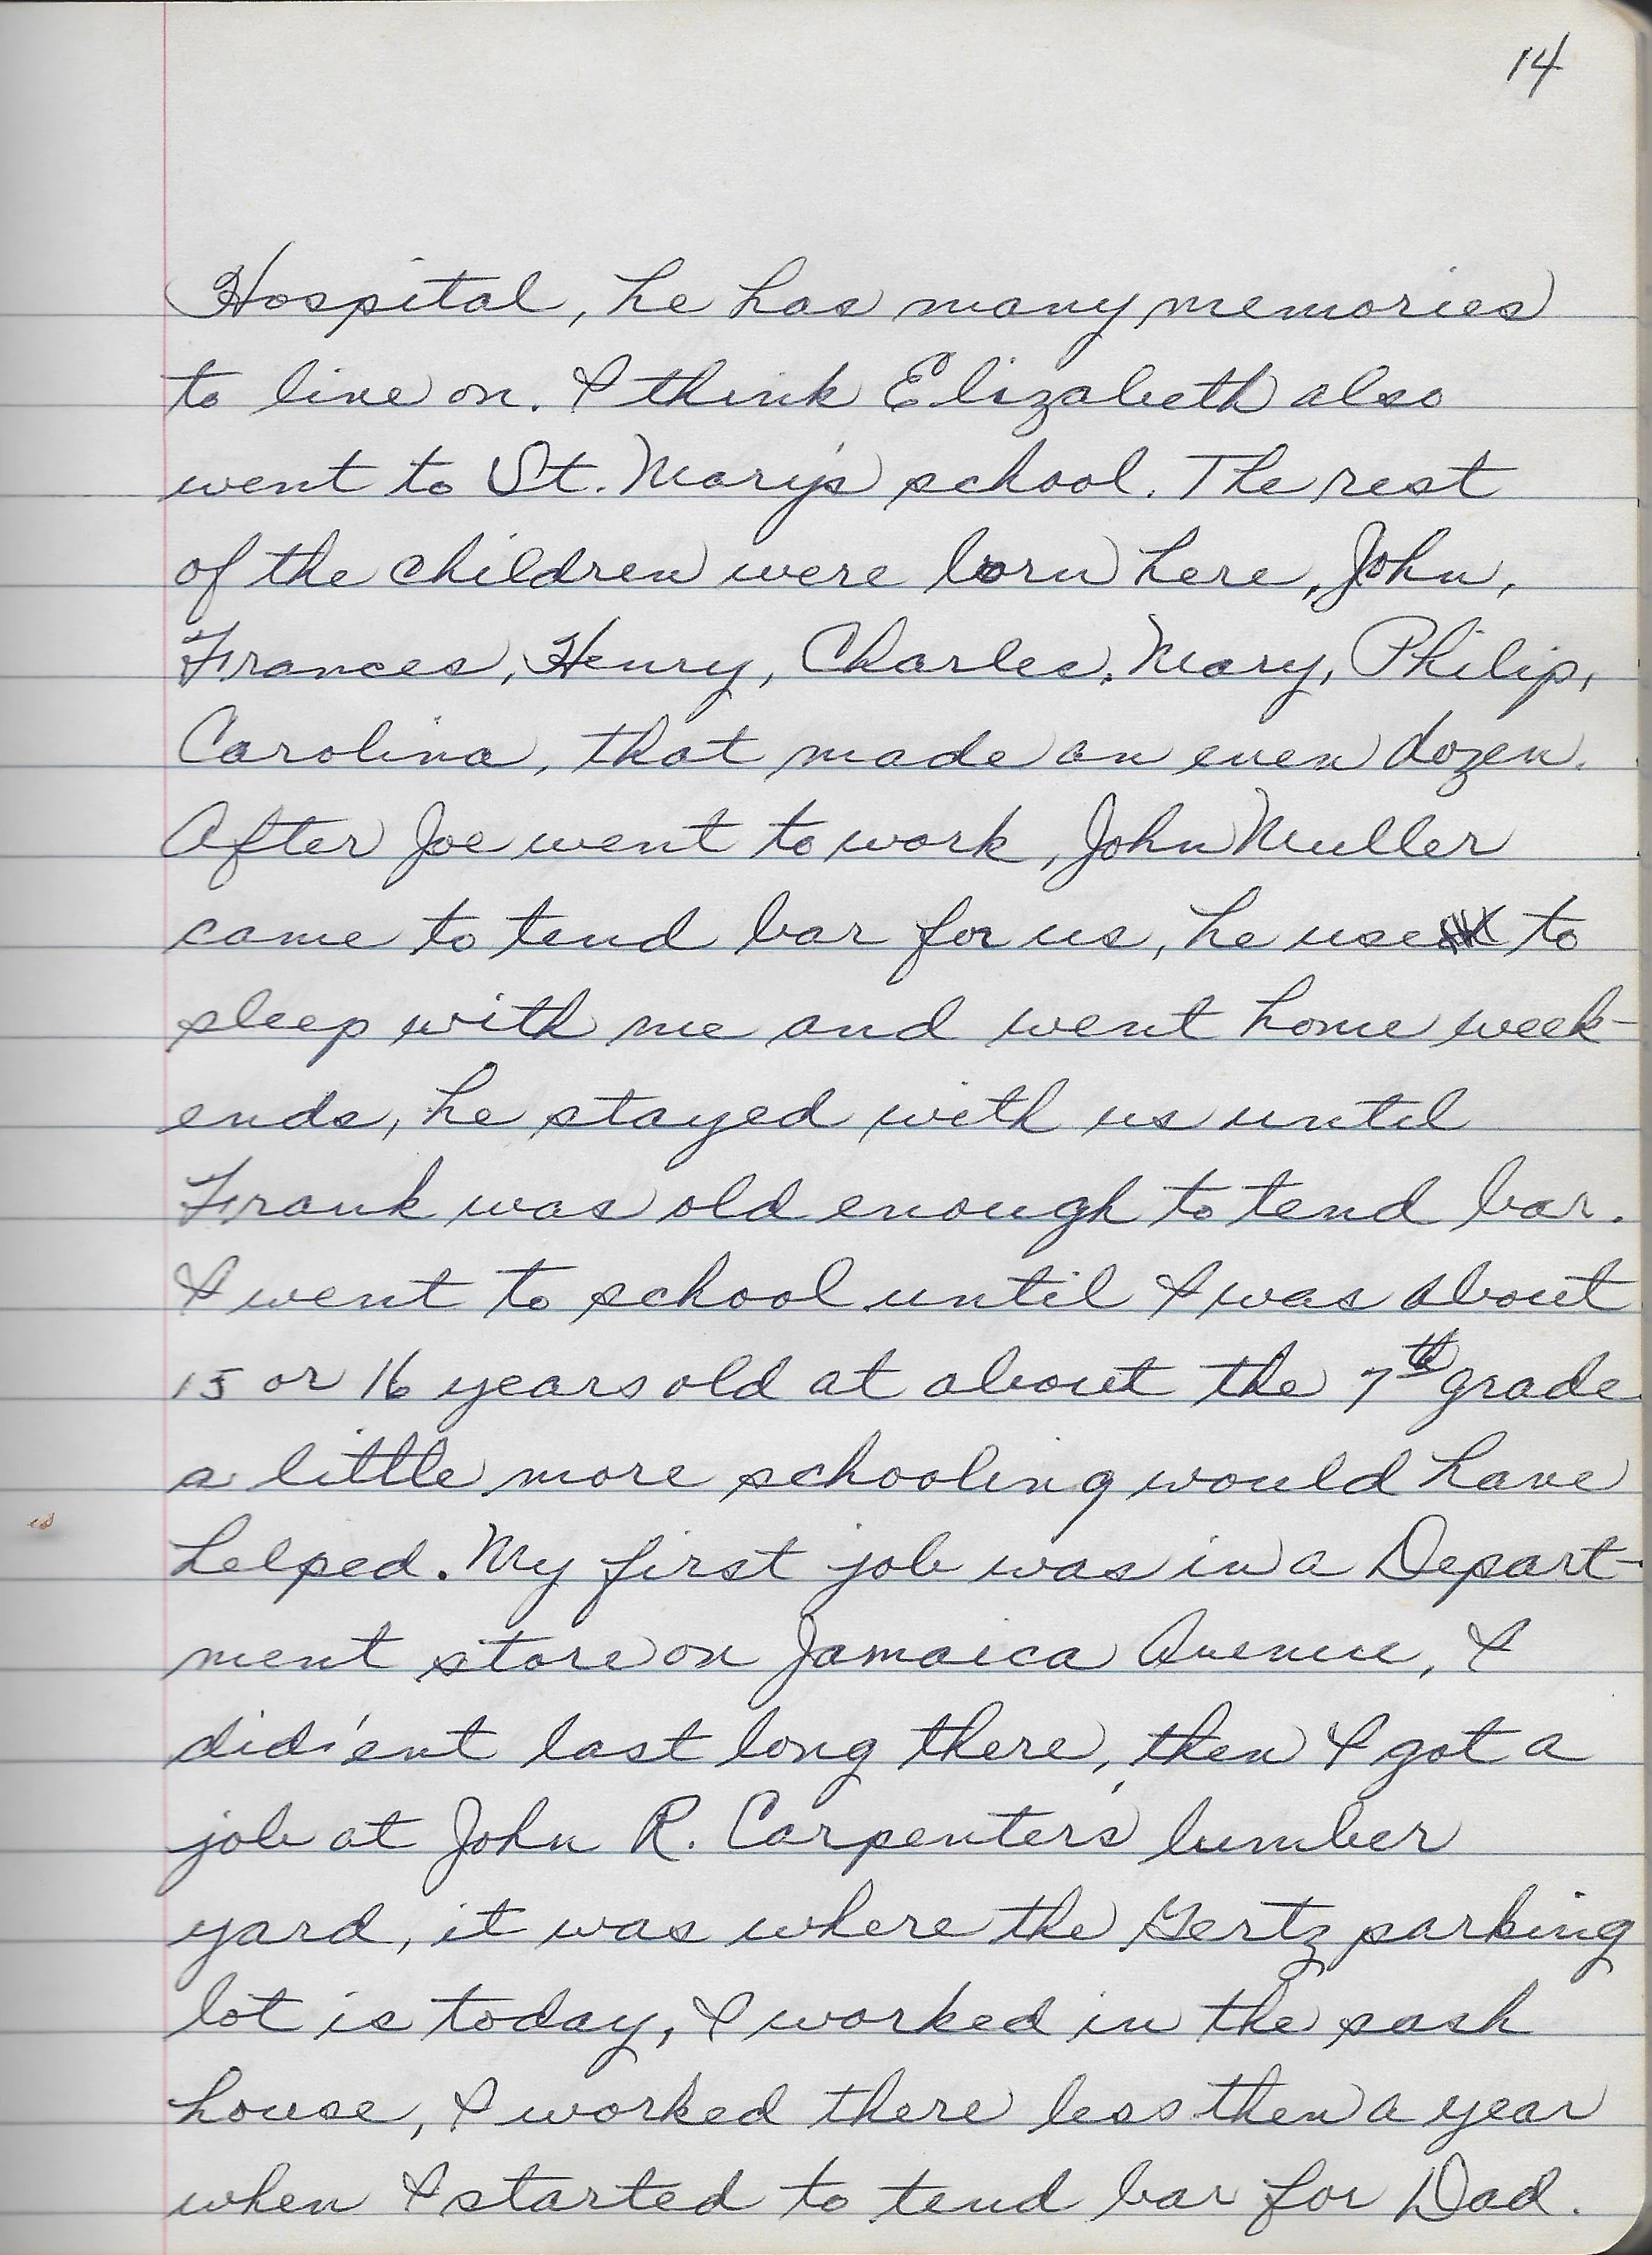 14
Hospital, he has many memories
to live on. I think Elizabeth also
went to St. Mary's school. The rest
of the children were born here, John,
Frances, Henry, Charles, Mary, Philip,
Carolina, that made an even dozen.
After Joe went to work, John Muller
came to tend bar for us, he use to
sleep with me and went home week-
ends, he stayed with us until
Frank was old enough to tend bar.
I went to school until I was about
15 or 16 years old at about the 7th grade
a little more schooling would have
helped. My first job was in a Depart-
ment store on Jamaica Avenue, I
did'ent last long there, then I got a
job at John R. Carpenter's lumber
yard, it was where the Gertz parking
lot is today, I worked in the sash
house, I worked there less then a year
when I started to tend bar for Dad.